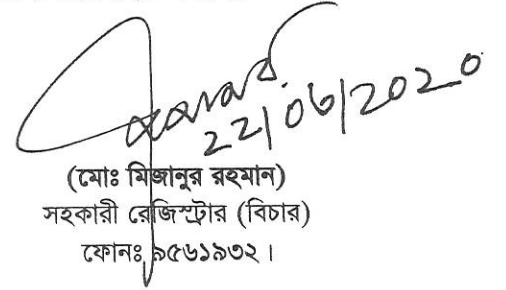 22/06/2020
(মোঃ মিজানুর রহমান)
সহকারী রেজিস্ট্রার (বিচার)
ফোনঃ ৯৫৬১৯৩২।